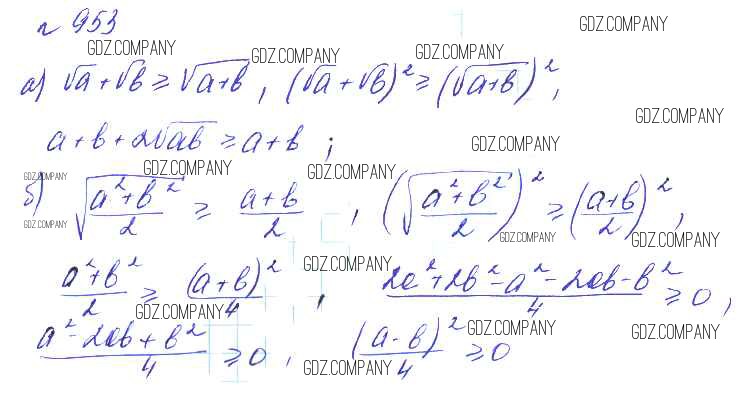 № 953
GDZ.COMPANY GDZ.COMPANY GDZ.COMPANY GDZ.COMPANY
а) √a + √b ≥ √(a+b), (√a + √b)² ≥ (√(a+b))²,
GDZ.COMPANY
a + b + 2√(ab) ≥ a + b ;
GDZ.COMPANY
GDZ.COMPANY GDZ.COMPANY GDZ.COMPANY
б) √((a²+b²)/2) ≥ (a+b)/2, (√((a²+b²)/2))² ≥ ((a+b)/2)²,
GDZ.COMPANY GDZ.COMPANY GDZ.COMPANY
(a²+b²)/2 ≥ (a+b)²/4, (2a²+2b²-a²-2ab-b²)/4 ≥ 0,
GDZ.COMPANY
GDZ.COMPANY GDZ.COMPANY GDZ.COMPANY
(a²-2ab+b²)/4 ≥ 0, (a-b)²/4 ≥ 0
GDZ.COMPANY